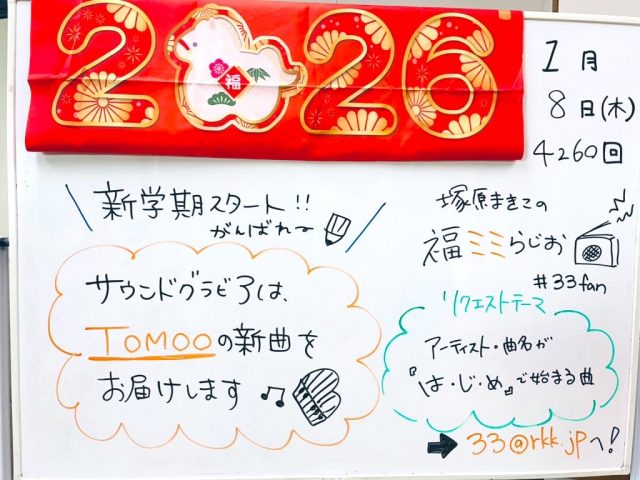 2026
福
1月
8日(木)
4260回
新学期スタート!!
がんばれ〜
塚原まきこの
福ミミらじお
#33fan
サウンドグラビアは、
TOMOOの新曲を
お届けします
リクエストテーマ
アーティスト・曲名が
『は・じ・め』で始まる曲
➡ 33@rkk.jpへ!